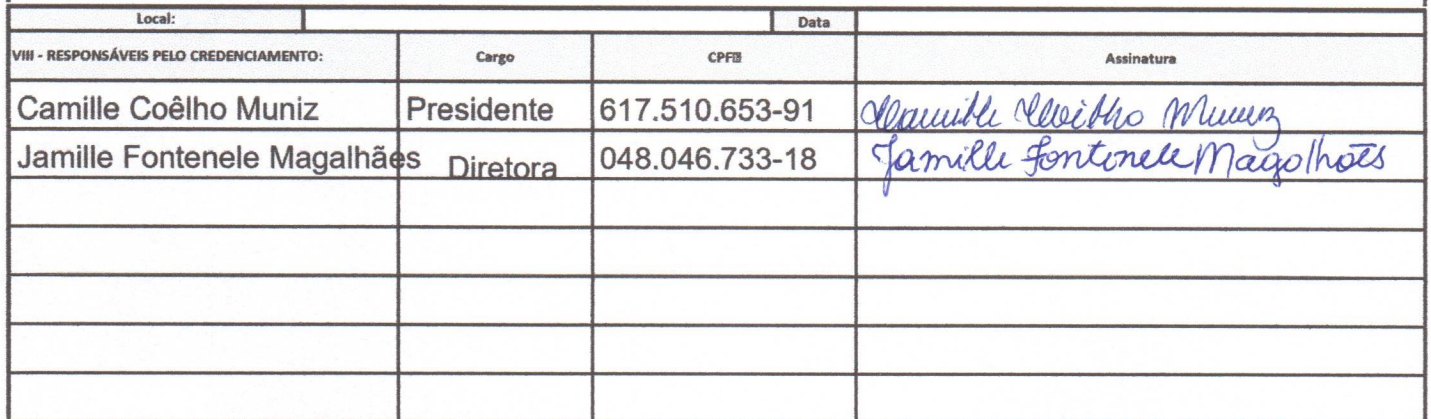 Local: Data
VIII - RESPONSÁVEIS PELO CREDENCIAMENTO: Cargo CPF Assinatura
Camille Coêlho Muniz Presidente 617.510.653-91 Camille Coêlho Muniz
Jamille Fontenele Magalhães Diretora 048.046.733-18 Jamille Fontenele Magalhães